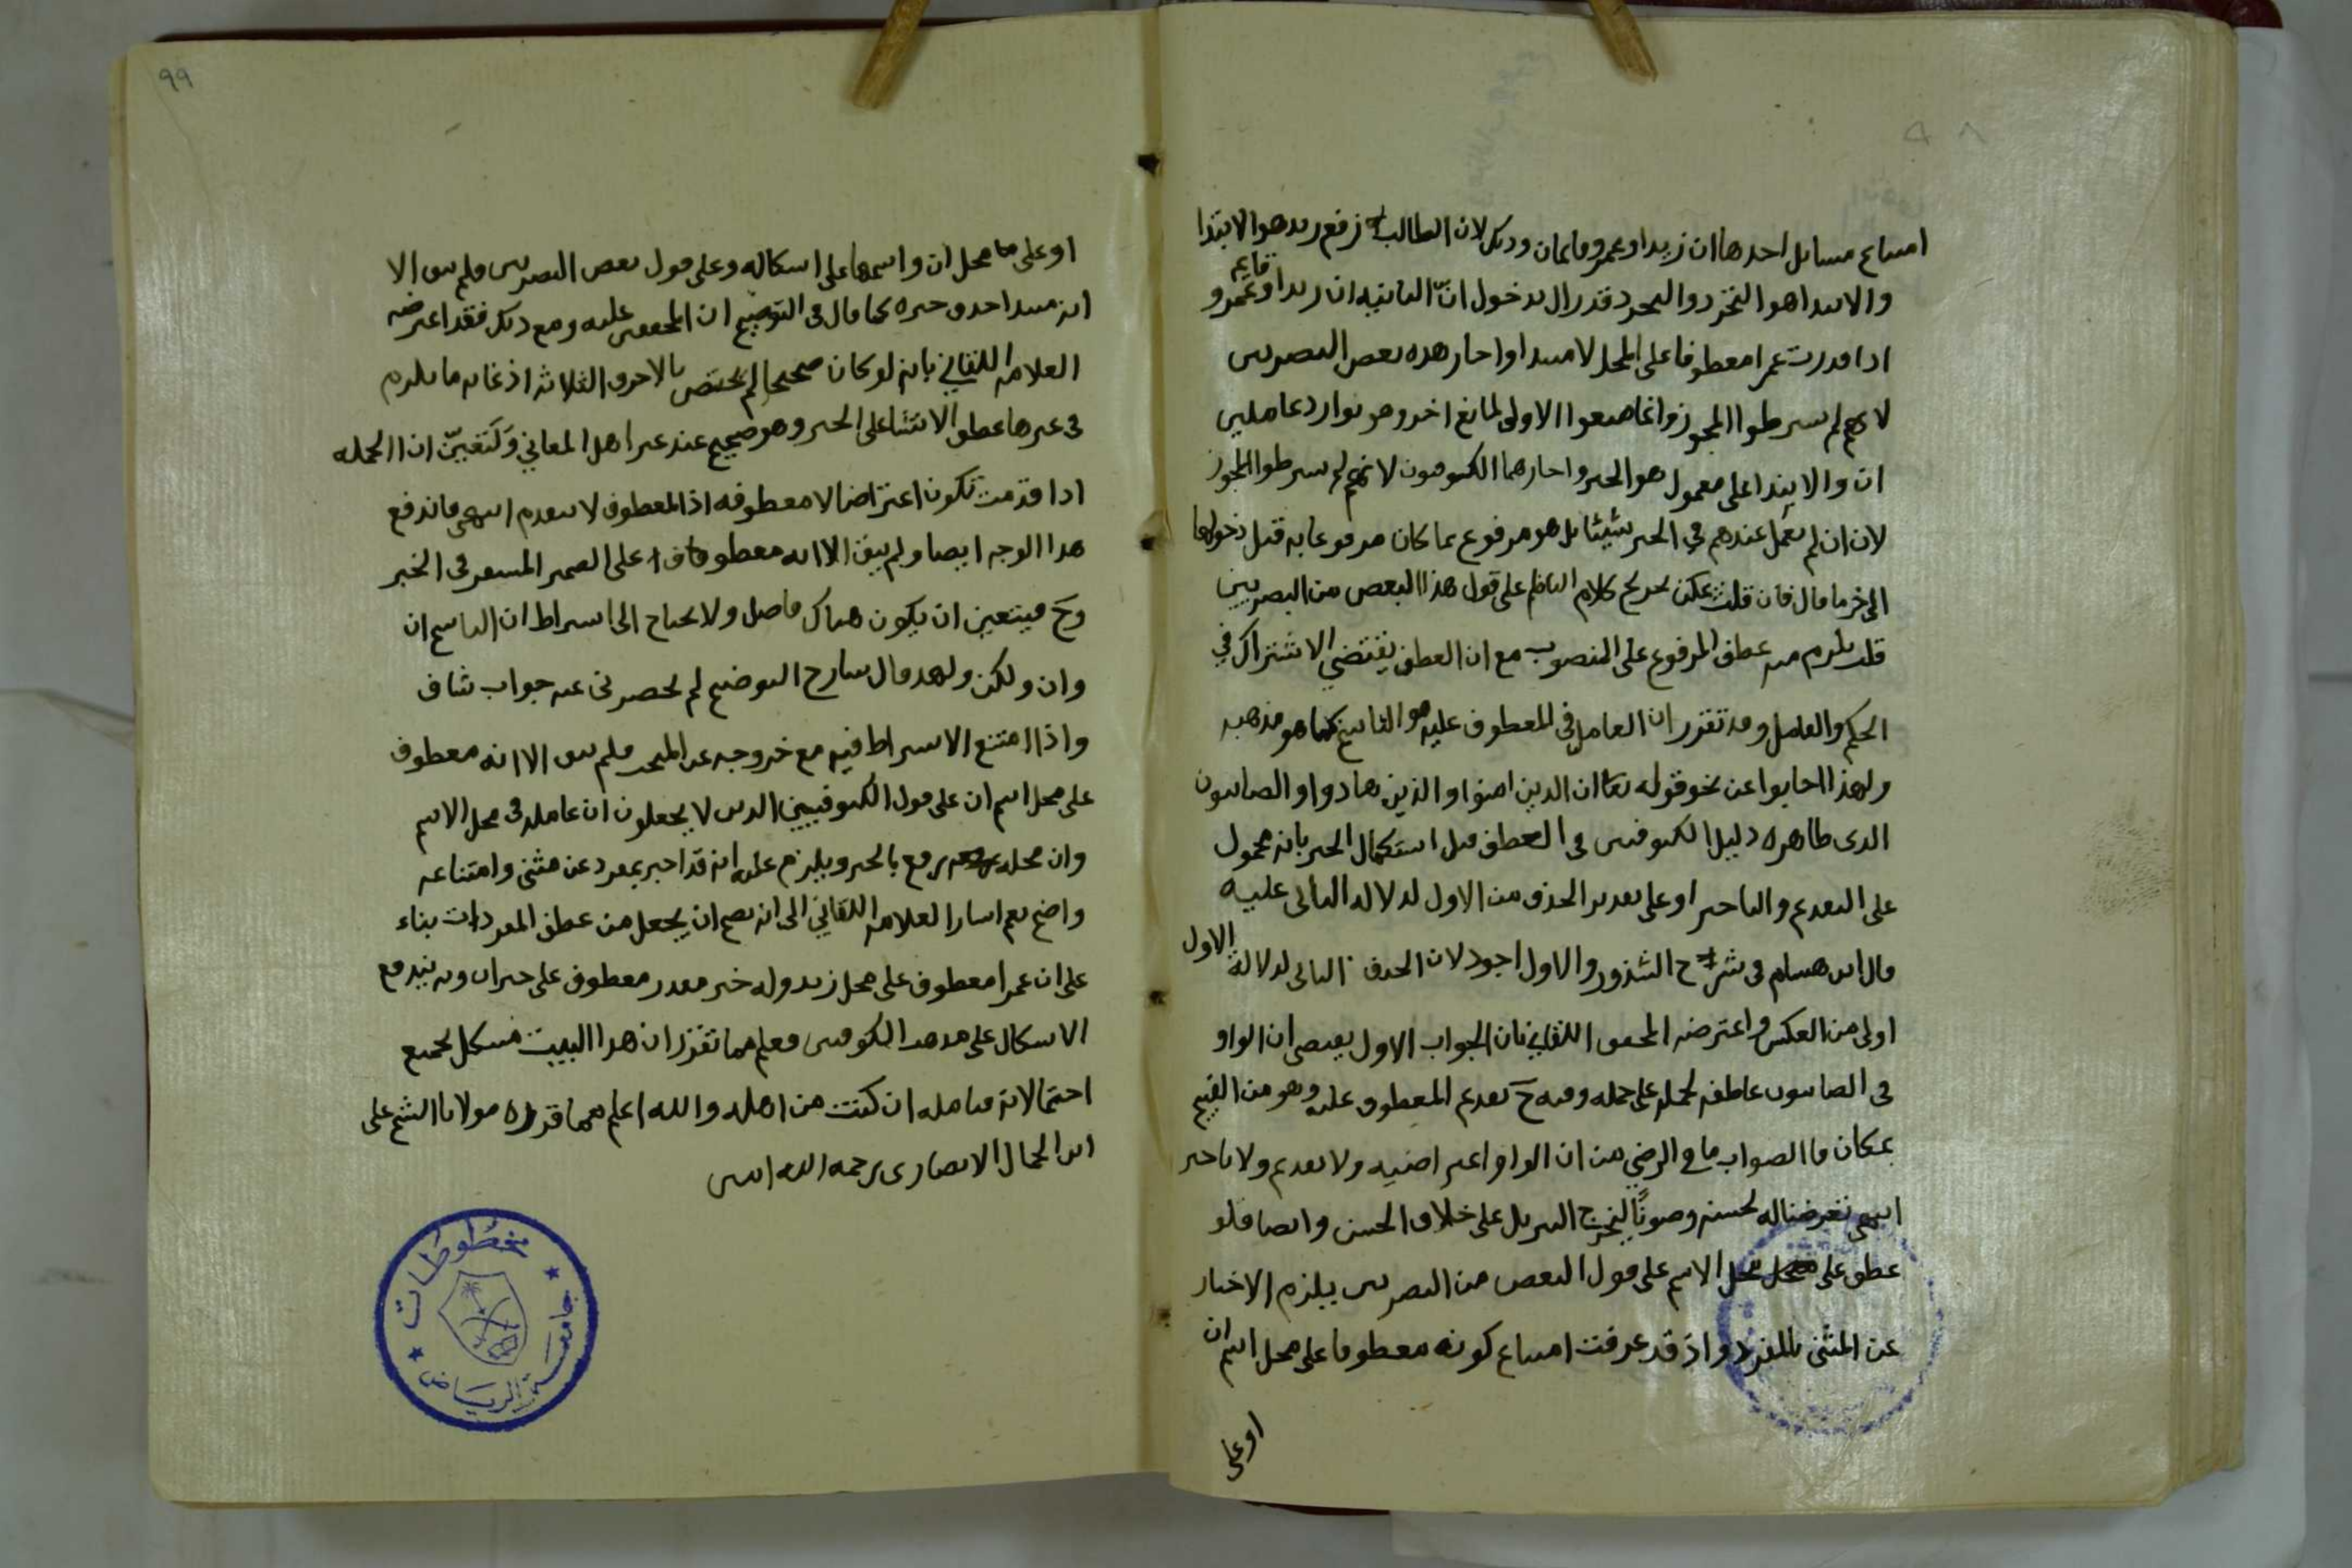 امتناع مسائل احدها ان زيدا وعمرو قائمان وذلك لان الطالب لرفع زيد هو الابتدا
والابتدا هو التجرد والتجرد قد زال بدخول انّ الثانيه ان زيدا وعمرو قايم
اذا قدرت عمرا معطوفا على المحل لا مبتدا واجاز هذه بعض البصريين
لانهم لم يشرطوا المجوز وانما منعوا الاولى لمانع اخر وهو توارد عاملين
ان والابتدا على معمول هو الخبر واجازهما الكوفيون لانهم لم يشرطوا المجوز
لان ان لم تعمل عندهم في الخبر شيئا بل هو مرفوع بما كان مرفوعا به قبل دخولها
الى اخر ما قال فان قلت يمكن تخريج كلام الناظم على قول هذا البعض من البصريين
قلت يلزم منه عطف المرفوع على المنصوب مع ان العطف يقتضي الاشتراك في
الحكم والعامل وقد تقرر ان العامل في المعطوف عليه هو الناسخ كما هو مذهبه
ولهذا اجابوا عن نحو قوله تعا ان الذين امنوا والذين هادوا والصابيون
الذي ظاهره دليل الكوفيين في العطف قبل استكمال الخبر بانه محمول
على التقديم والتاخير او على تقدير الحذف من الاول لدلالة الثاني عليه
قال ابن هشام في شرح الشذور والاول اجود لان الحذف الثاني لدلالة الاول
اولى من العكس واعترضه المحقق اللقاني بان الجواب الاول يقتضي ان الواو
في الصابيون عاطفة لجملة على جمله وفيه ح تقديم المعطوف عليه وهو من القبح
بمكان فاالصواب ما في الرضي من ان الواو اعتراضيه ولا تقديم ولا تاخير
انتهى تعرضنا له لحسنه وصونًا لتخريج التنزيل على خلاف الحسن وايضا فلو
عطف على محل الاسم على قول البعض من البصريين يلزم الاخبار
عن المثنى بالمفرد واذ قد عرفت امتناع كونه معطوفا على محل اسم ان
او على
٩٩
او على محل ان واسمها على اشكاله وعلى قول بعض البصريين فلم يبق الا
انه مبتدا حذف خبره كما قال في التوضيح ان المحققين عليه ومع ذلك فقد اعترضه
العلامة اللقاني بانه لو كان صحيحا لم يختص بالاحرف الثلاثة اذ غاية ما يلزم
في غيرها عطف الانشا على الخبر وهو صحيح عند غير اهل المعاني ولتعيّن ان الجمله
اذا قدمت تكون اعتراضا لا معطوفه اذ المعطوف لا يتقدم انتهى فاندفع
هذا الوجه ايضا ولم يبق الا انه معطوف على الضمير المستتر في الخبر
وح فيتعين ان يكون هناك فاصل ولا يحتاج الى اشتراط ان الناسخ ان
وان ولكن ولهذا قال شارح التوضيح لم يحضرني عنه جواب شاف
واذا امتنع الاشتراط فيه مع خروجه عن المبحث فلم يبق الا انه معطوف
على محل اسم ان على قول الكوفيين الذين لا يجعلون ان عاملة في محل الاسم
وان محله رفع بالخبر ويلزم عليه انه قد اخبر بمفرد عن مثنى وامتناعه
واضح نعم اشار العلامة اللقاني الى انه يصح ان يجعل من عطف المفردات بناء
على ان عمرا معطوف على محل زيد وله خبر مقدر معطوف على خبر ان وبه يندفع
الاشكال على مذهب الكوفيين فعلم مما تقرر ان هذا البيت مشكل بجميع
احتمالاته فتامله ان كنت من اهله والله اعلم مما قرره مولانا الشيخ على
ابن الجمال الانصارى رحمه الله انتهى
مخطوطات
جامعة الرياض